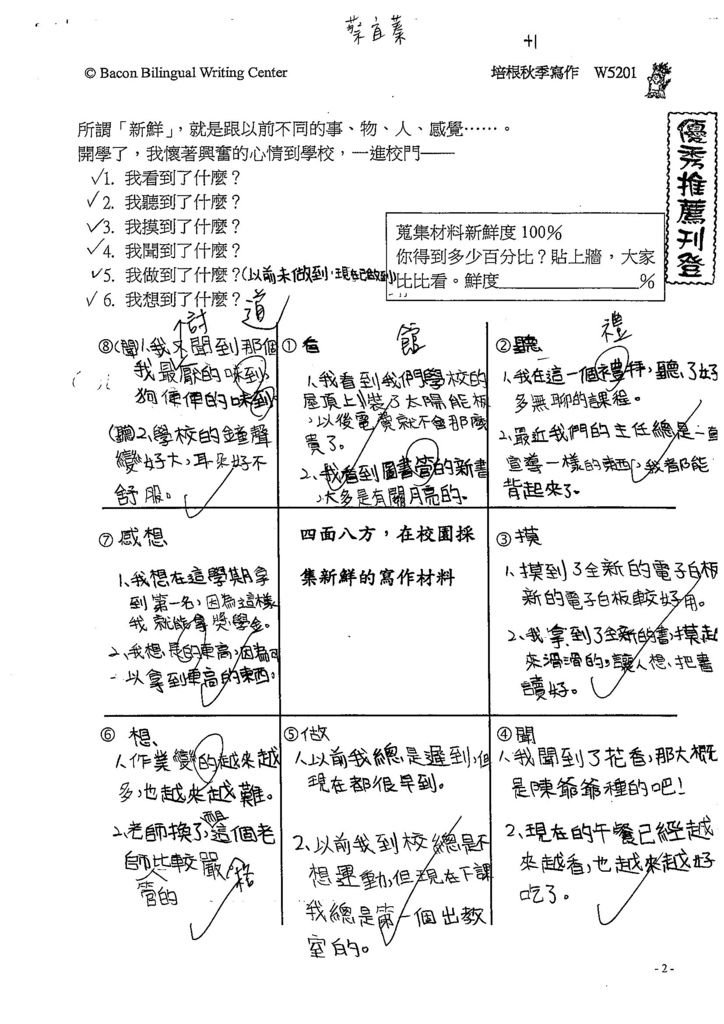 蔡宜蓁
+1
© Bacon Bilingual Writing Center
培根秋季寫作 W5201
優秀推薦刊登
所謂「新鮮」，就是跟以前不同的事、物、人、感覺……。
開學了，我懷著興奮的心情到學校，一進校門──
✓1. 我看到了什麼？
✓2. 我聽到了什麼？
✓3. 我摸到了什麼？
✓4. 我聞到了什麼？
✓5. 我做到了什麼？(以前未做到，現在已做到)
✓6. 我想到了什麼？
蒐集材料新鮮度 100%
你得到多少百分比？貼上牆，大家
比比看。鮮度 %
討 道
⑧(聞)1、我又聞到那個
我最厭的味到，
狗便便的味到。
(聽)2、學校的鐘聲
變好大，耳朵好不
舒服。
館
①看
1、我看到我們學校的
屋頂上裝了太陽能板
，以後電費就不會那麼
貴了。
2、我看到圖書管的新書
，大多是有關月亮的。
禮
②聽
1、我在這一個禮拜，聽了好
多無聊的課程。
2、最近我們的主任總是一直
宣導一樣的東西，我都能
背起來了。
⑦感想
1、我想在這學期拿
到第一名，因為這樣
我就能拿獎學金。
以拿到車高的東西，
四面八方，在校園採
集新鮮的寫作材料
③摸
1、摸到了全新的電子白板
新的電子白板較好用。
2、我拿到了全新的書，摸起
來滑滑的，讓人想、把書
讀好。
⑥想、
1、作業變的越來越
多，也越來越難。
2、老師換了，這個老
師比較嚴格
管的
⑤做
1、以前我總是遲到，但
現在都很早到。
2、以前我到校總是不
想運動，但現在下課
我總是第一個出教
室的。
④聞
1、我聞到了花香，那大概
是陳爺爺種的吧！
2、現在的午餐已經越
來越香，也越來越好
吃了。
- 2 -